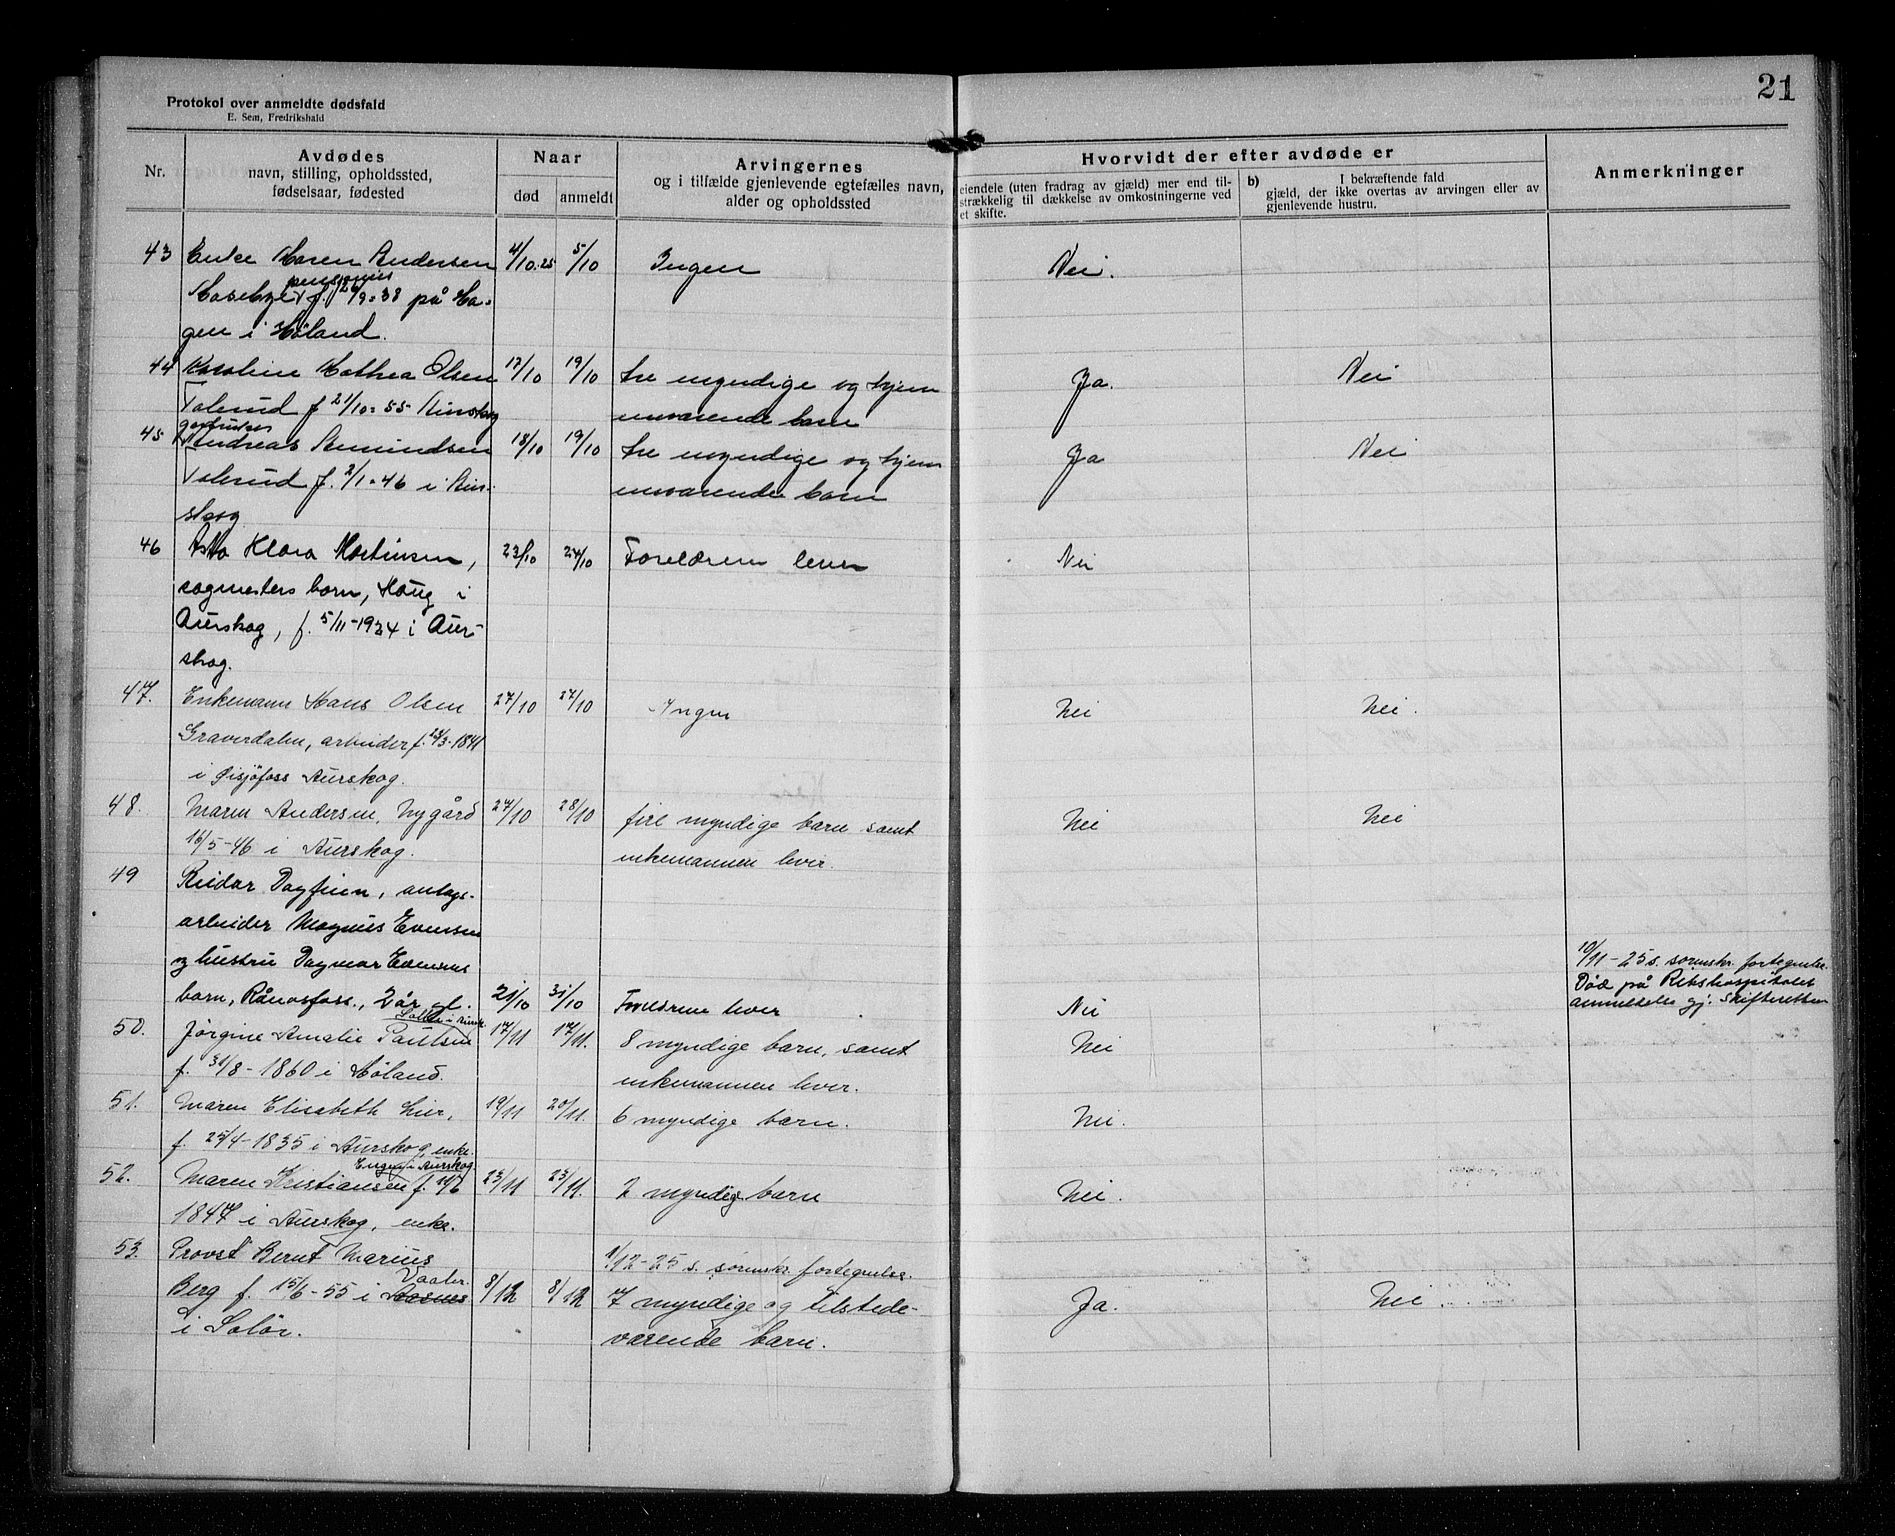 21
Protokol over anmeldte dødsfald
E. Sem, Fredrikshald
Nr.
Avdødes
navn, stilling, opholdssted,
fødselsaar, fødested
Naar
død
anmeldt
Arvingernes
og i tilfælde gjenlevende egtefælles navn,
alder og opholdssted
Hvorvidt der efter avdøde er
eiendele (uten fradrag av gjæld) mer end til-
strækkelig til dækkelse av omkostningerne ved
et skifte.
b) I bekræftende fald
gjæld, der ikke overtas av arvingen eller av
gjenlevende hustru.
Anmerkninger
43 Enke Maren Andersen 4/10.25 5/10 Ingen Nei.
pensjonist
f. 26/9-38 på Ha-
gen i Høland.
44 Karoline Mathea Olsen 17/10 19/10 tre myndige og hjem Ja. Nei
Tolerud f 21/10-55 Rinskog
mværende barn
gaardbruker
45 Andreas Amundsen 18/10 19/10 tre myndige og hjem Ja Nei
Tolerud f. 2/1-46 i Aur-
mværende barn
skog
46 Asta Klara Martinsen, 23/10 24/10 Forældrene lever Nei
sagmesters barn, Haug i
Aurskog, f. 5/11-1924 i Aur-
skog.
47. Enkemann Hans Olsen 27/10 27/10 Ingen Nei Nei.
Graverdalen, arbeider f. 23/3-1841
i Øisjøfoss Aurskog.
48. Maren Andersen, Nygård 27/10 28/10 fire myndige barn samt Nei Nei
16/5-46 i Aurskog.
enkemannen lever.
49 Reidar Dagfinn, anlegs-
arbeider Magnus Evensen
og hustru Dagmar Evensens
barn, Rånåsfoss., 2 år gl. 21/10 31/10 Foreldrene lever Nei
10/11-25 s. sorenskr. fortegnelse.
Død på Rikshospitalet
anmeldelse gj. Skifteretten
50. Jørgine Amalie Paulsen 17/11 17/11. 8 myndige barn, samt Nei
f. 31/8-1860 i Høland.
enkemannen lever.
51. Maren Elisabeth Lier, 19/11 20/11. 6 myndige barn. Nei.
f. 25/4-1835 i Aurskog, enke.
Engen i Aurskog
52. Maren Kristiansen f. 19/6 23/11 23/11. 2 myndige barn Nei.
1847 i Aurskog, enke.
53. Provst Bernt Marius
1/12-25 s. sorenskr. fortegnelse.
Vaaler
Berg f. 15/6-55 i Aasnes 8/12 8/12 7 myndige og tilstede- Ja. Nei
i Solør.
værende barn.